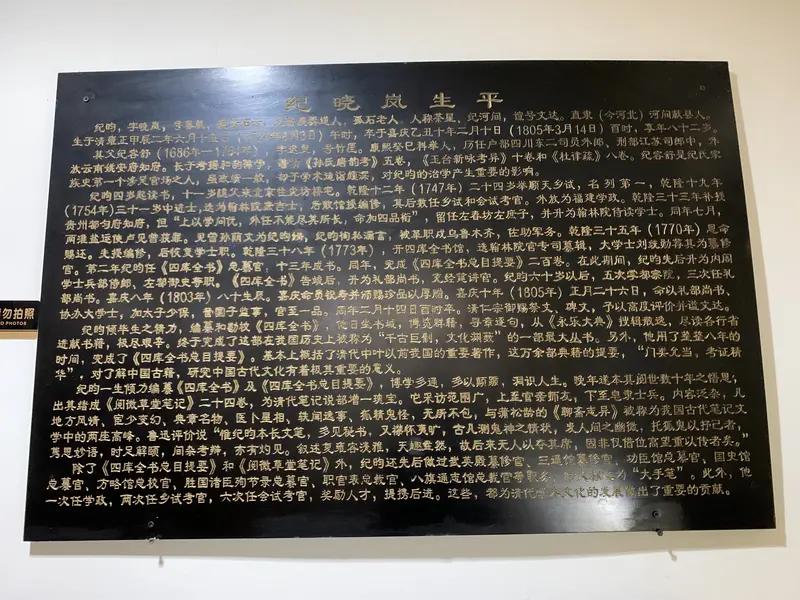 纪晓岚生平
纪昀，字晓岚，字春帆，孤石老人，人称茶星，纪河间，谥号文达。直隶（今河北）河间献县人。
生于清雍正甲辰二年六月十五日午时，卒于嘉庆乙丑十年二月十日（1805年3月14日）酉时，享年八十二岁。
其父纪容舒（1686年—康熙癸巳科举人，历任户部四川东二司员外郎、刑部江苏司郎中，外
放云南姚安府知府。长于考据和韵律学，著有《孙氏唐韵考》五卷，《玉台新咏考异》十卷和《杜律疏》八卷。纪容舒是纪氏家
族史第一个涉足官场之人，对纪昀的治学产生重要的影响。
纪昀四岁起读书，十一岁随父亲乾隆十二年（1747年）二十四岁举顺天乡试，名列第一，乾隆十九年
（1754年）三十一岁中进士，选为翰林院庶吉士，后散馆授编修，其后数任乡试和会试考官。外放为福建学政。乾隆三十三年补授
贵州都匀府知府，但“上以学问优，外任不能尽其所长，命加四品衔”，留任左春坊左庶子，并升为翰林院侍读学士。同年七月，
两淮盐运使卢见曾获罪。见曾孙纪昀徇私漏言，被革职戍乌鲁木齐，佐助军务。乾隆三十五年（1770年）恩命
赐还。先授编修，后恢复学士职。乾隆三十八年（1773年），开四库全书馆，选翰林院官专司纂辑，大学士刘统勋荐其为纂修
官。第二年纪昀任《四库全书》总纂官，十三年成书。同年，完成《四库全书总目提要》二百卷。在此期间，纪昀先后升为内阁
学士兵部侍郎，左都御史等职。《四库全书》告竣后，升为礼部尚书，充经筵讲官。纪昀六十岁以后，五次掌都察院，三次任礼
部尚书。嘉庆八年（1803年）八十生辰，嘉庆十年（1805年）正月二十六日，命以礼部尚书、
协办大学士，加太子少保，兼国子监事，官至一品。同年二月十四日酉时卒。清仁宗御赐祭文、碑文，予以高度评价并谥文达。
纪昀倾毕生之精力，编纂和勘校《四库全书》，他日坐书城，博览群籍，寻章逐句，从《永乐大典》搜辑散逸，尽读各行省
进献书籍，极尽艰辛。终于完成了这部在我国历史上被称为“千古巨制，文化渊薮”的一部最大丛书。另外，他用了整整八年的
时间，完成了《四库全书总目提要》。基本上概括了清代中叶以前我国的重要著作，这万余部典籍的提要，“门类允当，考证精
华”，对了解中国古籍，研究中国古代文化有着极其重要的意义。
纪昀一生倾力编纂《四库全书》及《四库全书总目提要》，博学多通，多以阅历，洞识人生。晚年遂本其阅世数十年之悟思，
出其绪成《阅微草堂笔记》二十四卷，为清代笔记说部增一瑰宝。它采访范围广，上至官亲师友，下至皂隶士兵。内容泛杂，凡
地方风情，宦海变幻，典章名物，医卜星相，轶闻逸事，狐精鬼怪，无所不包，与蒲松龄的《聊斋志异》被称为我国古代笔记文
学中的两座高峰。鲁迅评价说“惟纪昀本长文笔，多见秘书，又襟怀夷旷，古凡测鬼神之情状，发人间之幽微，托狐鬼以抒己者，
隽思妙语，时足解颐，间杂考辨，亦有灼见。叙述复雍容淡雅，天趣盎然，故后来无人以夺其席，固非仅借位高望重以传者矣。”
除了《四库全书总目提要》和《阅微草堂笔记》外，纪昀还先后做过武英殿纂修官、三通馆纂修官、功臣馆总纂官、国史馆
总纂官、方略馆总校官、胜国诸臣殉节录总纂官、职官表总裁官、八旗通志馆总裁官等职务，“大手笔”。此外，他
一次任学政，两次任乡试考官，六次任会试考官，奖励人才，提携后进。这些，都为清代学术文化的发展做出了重要的贡献。
勿拍照
O PHOTOS